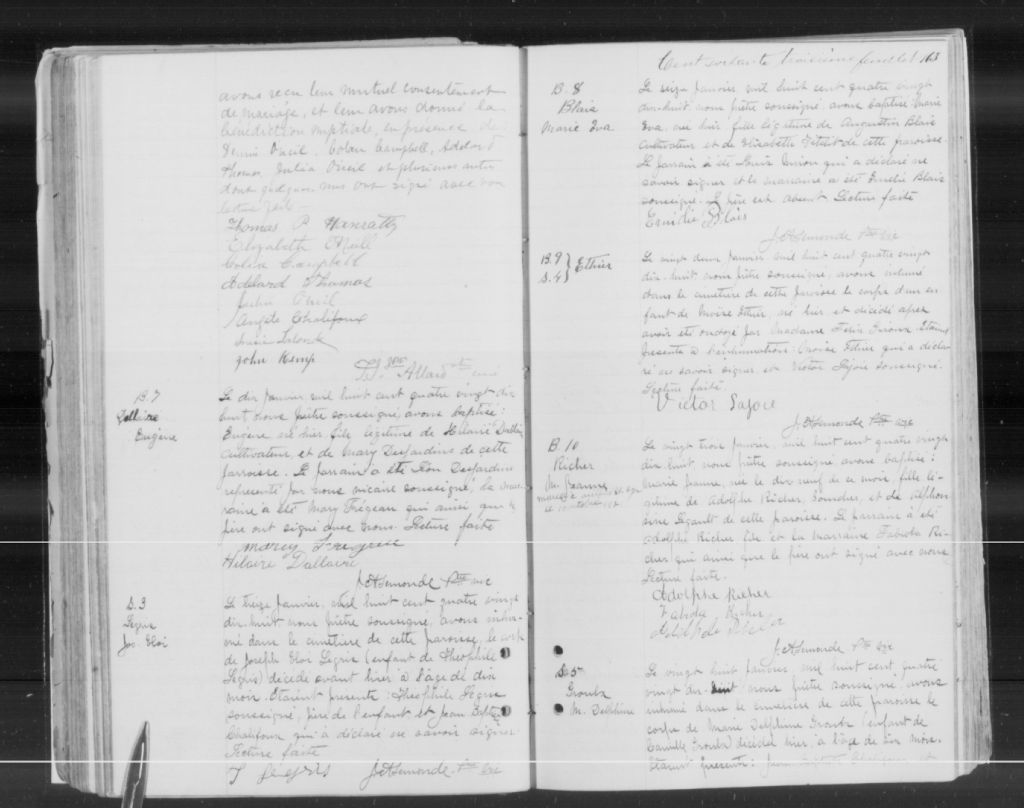 avons reçu leur mutuel consentement
de mariage, et leur avons donné la
bénédiction nuptiale, en présence de
Dennis Oneil, Colin Campbell, Adelard
Thomas, Julia Oneil et plusieurs autres
dont quelques uns ont signé avec nous
lecture faite
Thomas P Hanratty
Elizabeth
Colin Campbell
Adelard Thomas
Julia Oneil
Angele Chalifoux
Lalonde
John Kemp
Allard ptre curé
B. 7
Dallaire
Eugène
Le dix janvier mil huit cent quatre vingt dix
huit nous prêtre soussigné avons baptisé
Eugène, né hier, fils légitime de Hilaire Dallaire
cultivateur, et de Mary Desjardins de cette
paroisse. Le parrain a été Léon Desjardins
représenté par nous vicaire soussigné, la mar
raine a été Mary Trégeau qui ainsi que le
père ont signé avec nous. Lecture faite
Hilaire Dallaire
ptre vic
S. 3
Legris
Jos. Eloi
Le treize janvier, mil huit cent quatre vingt
dix-huit nous prêtre soussigné, avons inhu
mé dans le cimetière de cette paroisse, le corps
de Joseph Eloi Legris (enfant de Théophile
Legris) décédé avant hier à l'age de dix
mois. Etaient présents: Théophile Legris
soussigné, père de l'enfant et Jean Baptiste
Chalifoux qui a déclaré ne savoir signer
Lecture faite
T Legris ptre vic
Cent soixante troisième feuillet 163
B. 8
Blais
Marie Eva
Le seize janvier mil huit cent quatre vingt
dix-huit nous prêtre soussigné, avons baptisé Marie
Eva, née hier, fille légitime de Augustin Blais
cultivateur et de Elisabeth de cette paroisse.
Le parrain a été Louis qui a déclaré ne
savoir signer et la marraine a été Emélie Blais
soussigné. Le père est absent Lecture faite
Emilie Blais
ptre vic
B. 9
S. 4 } Ethier
Le vingt deux janvier mil huit cent quatre vingt
dix-huit nous prêtre soussigné, avons inhumé
dans le cimetière de cette paroisse le corps d'un en
fant de Moïse Ethier, né hier et décédé après
avoir été ondoyé par Madame Félix Giroux. Etaient
présents à l'inhumation: Moïse Ethier qui a décla
ré ne savoir signer, et Victor Lajoie soussigné.
Lecture faite.
Victor Lajoie
ptre vic
B 10
Richer
M. Jeanne
Le vingt trois janvier, mil huit cent quatre vingt
dix-huit nous prêtre soussigné avons baptisé:
Marie Jeanne, née le dix neuf de ce mois, fille lé
gitime de Adolphe Richer, et de Alphon
sine Legault de cette paroisse. Le parrain a été
Adolphe Richer fils et la marraine Fabiola Ri
cher qui ainsi que le père ont signé avec nous
Lecture faite.
Adolphe Richer
Fabiola Richer
Adolphe Richer
ptre vic
S. 5
Groulx
M. Delphine
Le vingt huit janvier mil huit cent quatre
vingt dix-huit nous prêtre soussigné, avons
inhumé dans le cimetière de cette paroisse le
corps de Marie Delphine Groulx (enfant de
Camille Groulx) décédé hier, à l'âge de dix mois.
Etaient présents: